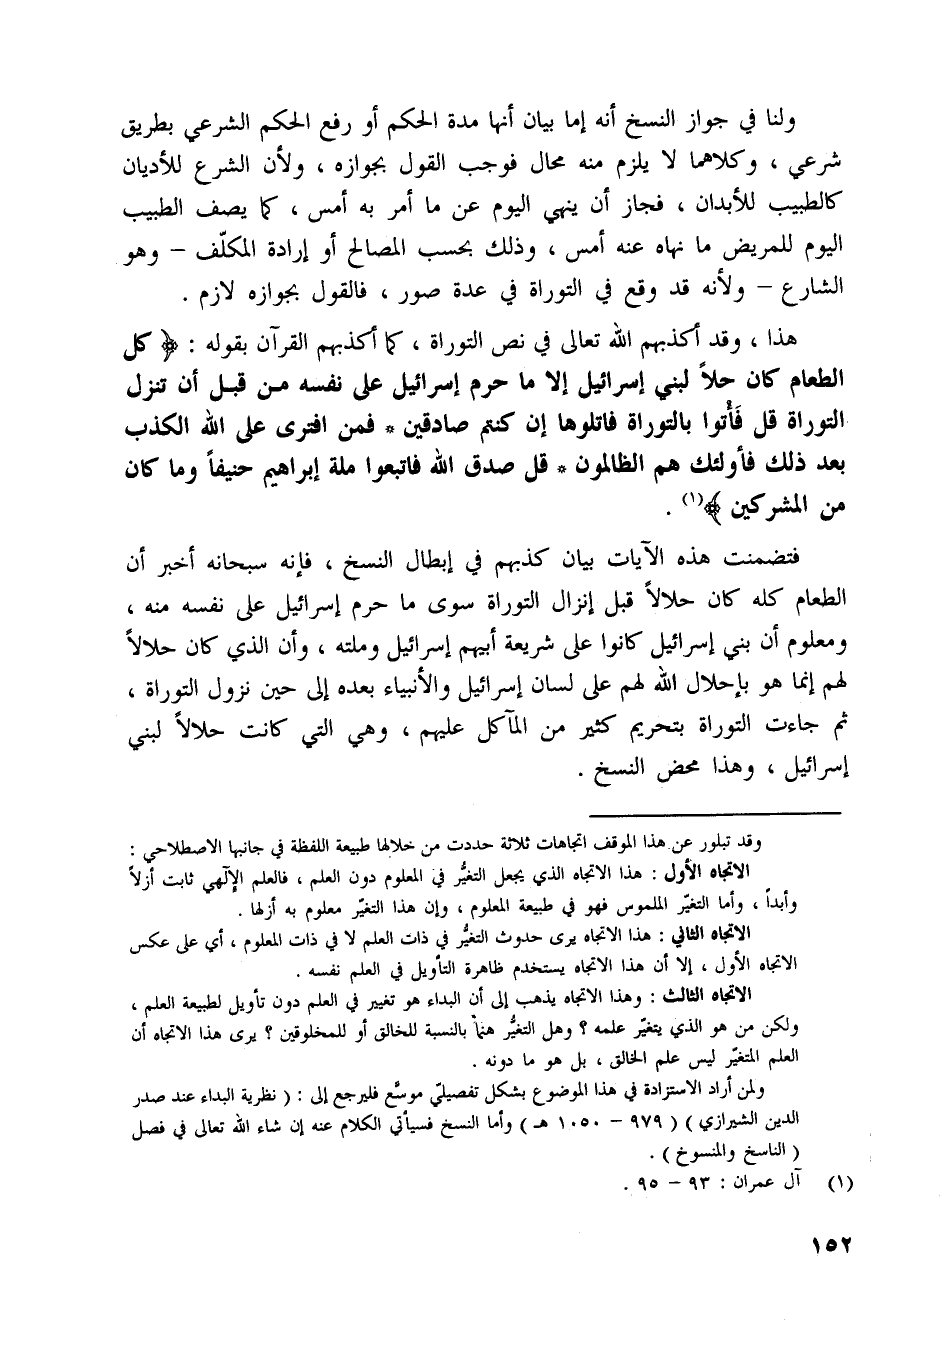 ولنا في جواز النسخ أنه إما بيان أنها مدة الحكم أو رفع الحكم الشرعي بطريق
شرعي ، وكلاهما لا يلزم منه محال فوجب القول بجوازه ، ولأن الشرع للأديان
كالطبيب للأبدان ، فجاز أن ينهي اليوم عن ما أمر به أمس ، كما يصف الطبيب
اليوم للمريض ما نهاه عنه أمس ، وذلك بحسب المصالح أو إرادة المكلّف – وهو
الشارع – ولأنه قد وقع في التوراة في عدة صور ، فالقول بجوازه لازم .
هذا ، وقد أكذبهم الله تعالى في نص التوراة ، كما أكذبهم القرآن بقوله : ﴿ كل
الطعام كان حلاً لبني إسرائيل إلا ما حرم إسرائيل على نفسه من قبل أن تنزل
التوراة قل فَأْتوا بالتوراة فاتلوها إن كنتم صادقين * فمن افترى على الله الكذب
بعد ذلك فأولئك هم الظالمون * قل صدق الله فاتبعوا ملة إبراهيم حنيفاً وما كان
من المشركين ﴾(١) .
فتضمنت هذه الآيات بيان كذبهم في إبطال النسخ ، فإنه سبحانه أخبر أن
الطعام كله كان حلالاً قبل إنزال التوراة سوى ما حرم إسرائيل على نفسه منه ،
ومعلوم أن بني إسرائيل كانوا على شريعة أبيهم إسرائيل وملته ، وأن الذي كان حلالاً
لهم إنما هو بإحلال الله لهم على لسان إسرائيل والأنبياء بعده إلى حين نزول التوراة ،
ثم جاءت التوراة بتحريم كثير من المآكل عليهم ، وهي التي كانت حلالاً لبني
إسرائيل ، وهذا محض النسخ .
وقد تبلور عن هذا الموقف اتجاهات ثلاثة حددت من خلالها طبيعة اللفظة في جانبها الاصطلاحي :
الاتجاه الأول : هذا الاتجاه الذي يجعل التغيُّر في المعلوم دون العلم ، فالعلم الإلٓهي ثابت أزلاً
وأبداً ، وأما التغيّر الملموس فهو في طبيعة المعلوم ، وإن هذا التغيّر معلوم به أزلها .
الاتجاه الثاني : هذا الاتجاه يرى حدوث التغيُّر في ذات العلم لا في ذات المعلوم ، أي على عكس
الاتجاه الأول ، إلا أن هذا الاتجاه يستخدم ظاهرة التأويل في العلم نفسه .
الاتجاه الثالث : وهذا الاتجاه يذهب إلى أن البداء هو تغيير في العلم دون تأويل لطبيعة العلم ،
ولكن من هو الذي يتغيّر علمه ؟ وهل التغيُّر هنا بالنسبة للخالق أو للمخلوقين ؟ يرى هذا الاتجاه أن
العلم المتغيّر ليس علم الخالق ، بل هو ما دونه .
ولمن أراد الاستزادة في هذا الموضوع بشكل تفصيليّ موسَّع فليرجع إلى : ( نظرية البداء عند صدر
الدين الشيرازي ) ( ٩٧٩ – ١٠٥٠ هـ ) وأما النسخ فسيأتي الكلام عنه إن شاء الله تعالى في فصل
( الناسخ والمنسوخ ) .
(١) آل عمران : ٩٣ – ٩٥ .
١٥٢